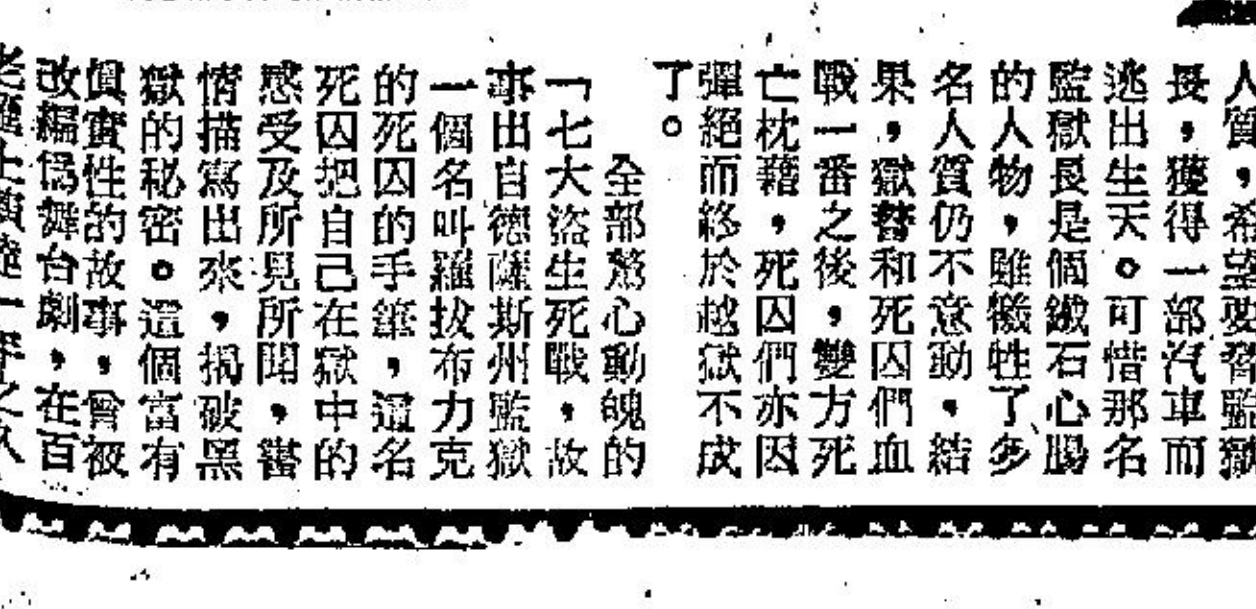 人質，希望要脅監獄
長，獲得一部汽車而
逃出生天。可惜那名
監獄長是個鐵石心腸
的人物，雖犧牲了多
名人質仍不意動，結
果，獄警和死囚們血
戰一番之後，雙方死
亡枕藉，死囚們亦因
彈絕而終於越獄不成
了。
全部驚心動魄的
「七大盜生死戰，故
事出自德薩斯州監獄
一個名叫羅拔布力克
的死囚的手筆，這名
死囚把自己在獄中的
感受及所見所聞，
情描寫出來，揭破黑
獄的秘密。這個富有
真實性的故事，曾被
改編為舞台劇，在百
老匯上演達一年之久